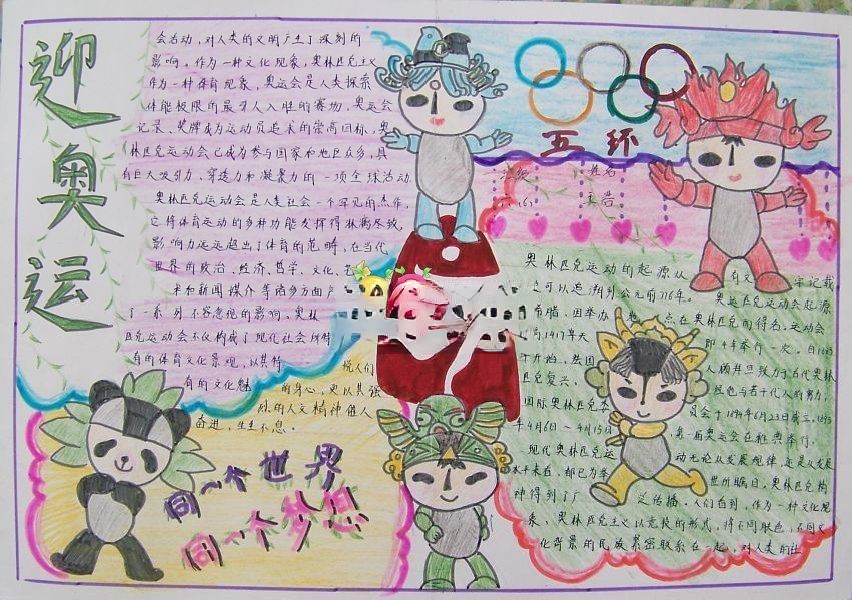 迎奥运
会活动，对人类的文明产生了深刻的
影响。作为一种文化现象，奥林匹克主义
作为一种体育现象，奥运会是人类探索
体能极限的最引人入胜的赛场，奥运会
记录、奖牌成为运动员追求的崇高目标，奥
林匹克运动会已成为参与国家和地区众多，具
有巨大吸引力、穿透力和凝聚力的一项全球活动.
奥林匹克运动会是人类社会一个罕见的杰作，
它将体育运动的多种功能发挥得淋漓尽致，
影响力远远超出了体育的范畴，在当代
世界的政治、经济、哲学、文化、艺
术和新闻媒介等诸多方面产
了一系列不容忽视的影响。奥林
匹克运动会不仅构成了现代社会所特
有的体育文化景观，以其特
有的文化魅 悦人们
的身心，更以其强
烈的人文精神催人
奋进，生生不息。
同一个世界
同一个梦想
五环
班级 姓名
奥林匹克运动的起源从
可以追溯到公元前776年。
希腊，因举办地点在奥林匹克而得名。运动会
国际奥林匹克委员会于1894年6月23日成立，1896
年4月6日—4月15日，第一届奥运会在雅典举行。
现代奥林匹克运动无论从发展规律，还是从发展
水平来看，都已为举世所瞩目。奥林匹克精
神得到了广泛传播。人们看到，作为一种文化现
象，奥林匹克主义以竞技的形式，将不同肤色、不同文
化背景的民族紧密联系在一起，对人类的社